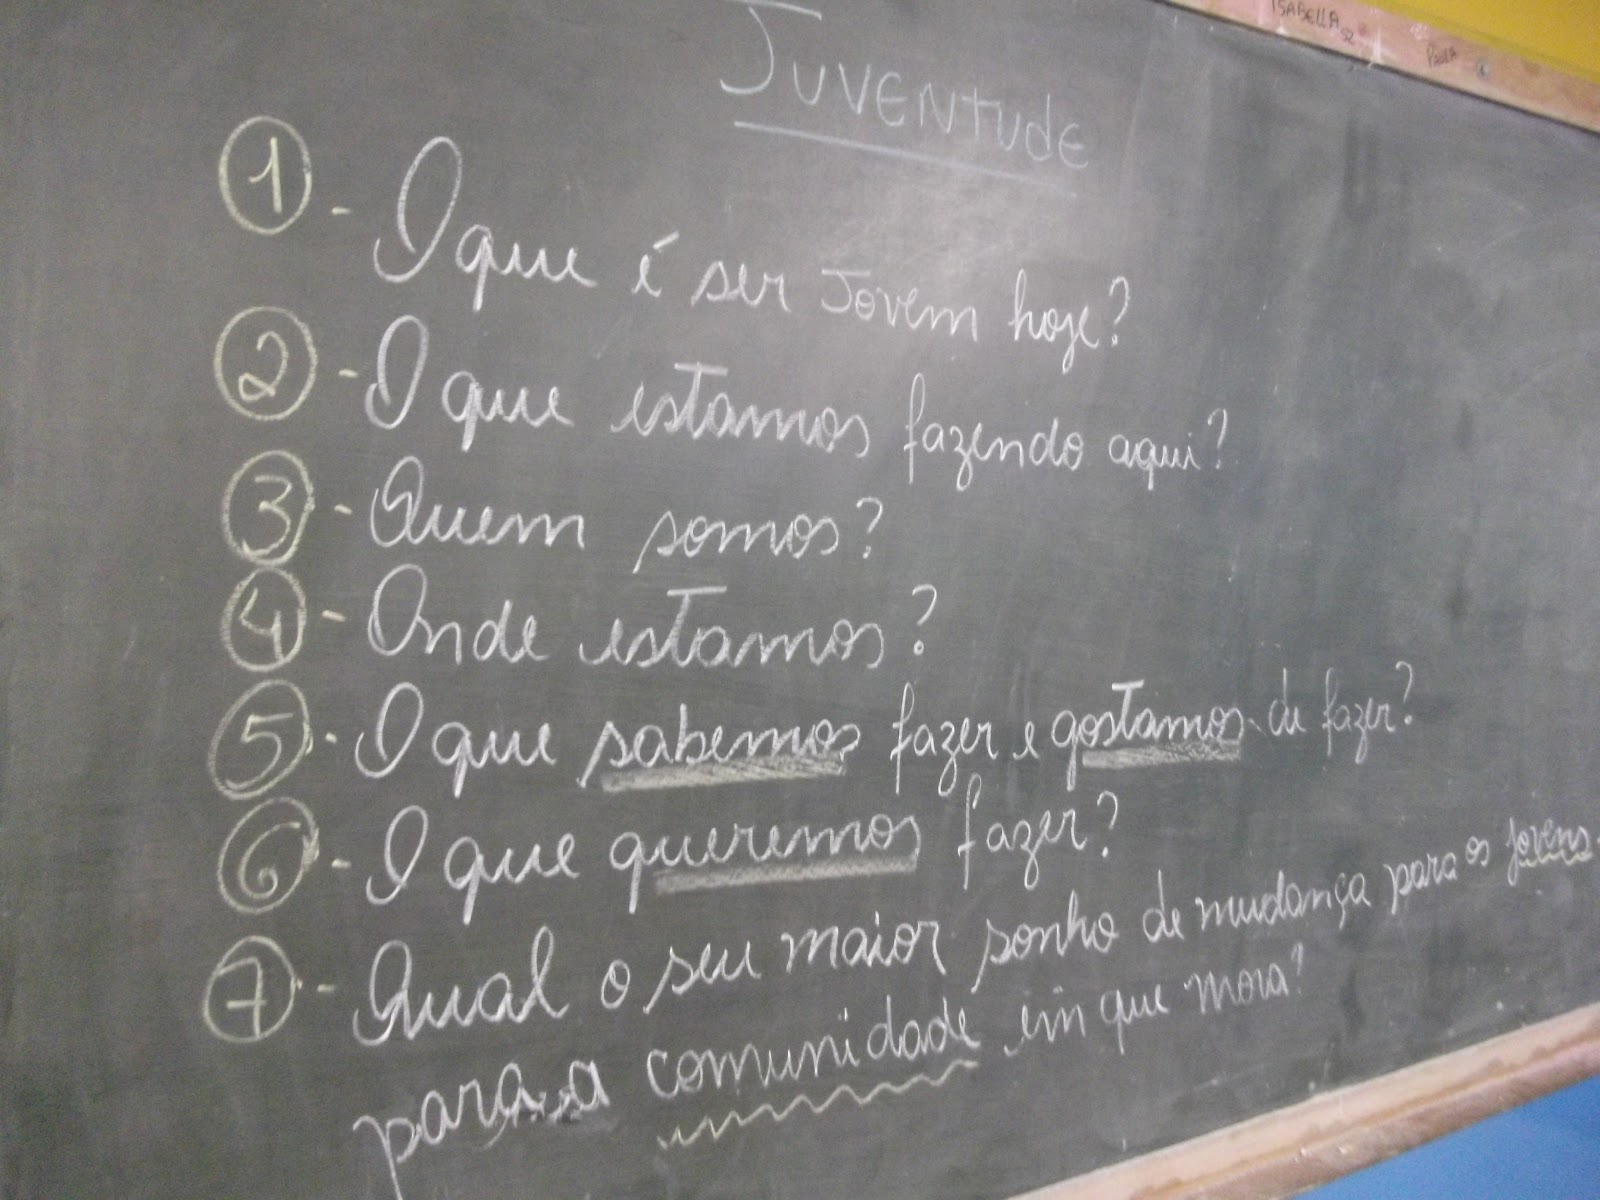 ISABELLA
PAOLA
JUVENTUDE
1 - O que é ser Jovem hoje?
2 - O que estamos fazendo aqui?
3 - Quem somos?
4 - Onde estamos?
5 - O que sabemos fazer e gostamos de fazer?
6 - O que queremos fazer?
7 - Qual o seu maior sonho de mudança para os jovens
para a comunidade em que mora?